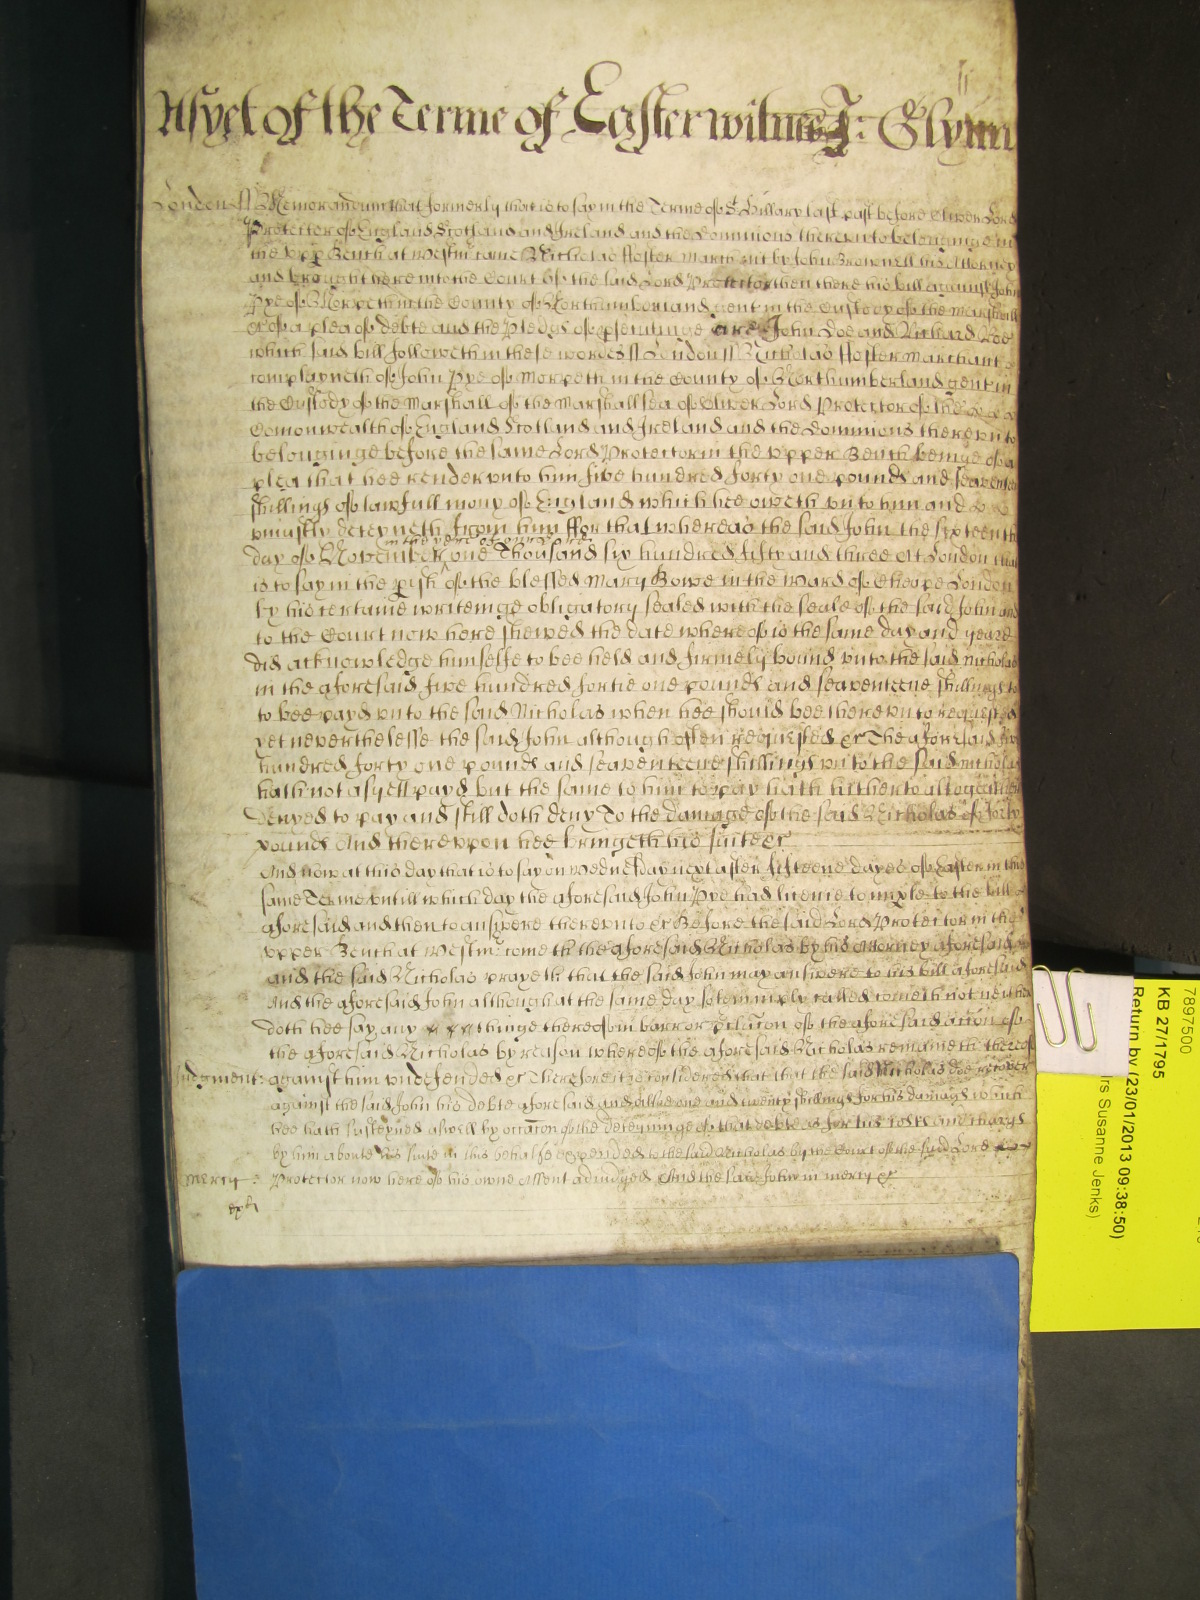 As yet of the Terme of Easter witnes J: Glynn
London ss Memorandum that formerly that is to say in the Terme of St Hillary last past before Oliver Lord
Protector of England Scotland and Ireland and the Dominions thereunto belonginge in
the upp Bench at Westm came Nicholas ffoster Marchant by John Brownell his Attorney
and brought here into the Court of the said Lord Protector then there his bill against John
Pye of Morpeth in the County of Northumberland gent in the Custody of the Marshall
&c of a plea of debte and the Pledgs of psentinge are John Doe and Richard Roe
which said bill followeth in these wordes ss London ss Nicholas ffoster Marchant
complayneth of John Pye of Morpeth in the County of Northumberland gent in
the Custody of the Marshall of the Marshallsea of Oliver Lord Protector of the
Comonwealth of England Scotland and Ireland and the Dominions thereunto
belonginge before the same Lord Protector in the Upper Bench beinge of a
plea that hee render unto him five hundred forty one pounds and seaventeene
shillings of lawfull mony of England which hee oweth unto him and
uniustly deteyneth from him ffor that whereas the said John the sixteenth
in the yeare of our Lord
day of November one Thousand six hundred fifty and three Att London that
is to say in the pish of the blessed Mary Bowe in the Ward of Cheape London
by his certaine writeinge obligatory sealed with the seale of the said John and
to the Court now here shewed the date whereof is the same day and yeare
did acknowledge himselfe to bee held and firmely bound unto the said Nicholas
in the aforesaid five hundred fortie one pounds and seaventeene shillings to
to bee payd unto the said Nicholas when hee should bee thereunto requested
yet neverthelesse the said John although often requested &c The aforesaid five
hundred forty one pounds and seaventeene shillings unto the said Nicholas
hath not as yett payd but the same to him to pay hath hitherto altogeather
denyed to pay and still doth deny To the damage of the said Nicholas of forty
pounds And thereuppon hee bringeth his suite &c
And now at this day that is to say on Wednesday next after fifteene dayes of Easter in this
same Terme untill which day the aforesaid John Pye had licence to imple to the bill
aforesaid and then to answere thereunto &c Before the said Lord Protector in the
upper Bench at Westm: cometh the aforesaid Nicholas by his Attorney aforesaid
and the said Nicholas prayeth that the said John may answere to his bill aforesaid
And the aforesaid John although at the same day solemnply called cometh not neither
doth hee say any thinge thereof in barr or pclucon of the aforesaid accon of
the aforesaid Nicholas by reason whereof the aforesaid Nicholas remaineth thereof
Judgment: against him undefended &c Therefore it is considered that that the said Nicholas doe recover
against the said John his debte aforesaid and alsoe one and twenty shillings for his damags which
hee hath susteyned aswell by occacon of the deteyninge of that debte as for his costs and chargs
by him aboute his suite in this behalfe expended to the said Nicholas by the Court of the said Lord
Mercy: Protector now here of his owne Assent adiudged And the said John in mercy &c
7897500
KB 27/1795
Return by (23/01/2013 09:38:50)
rs Susanne Jenks)